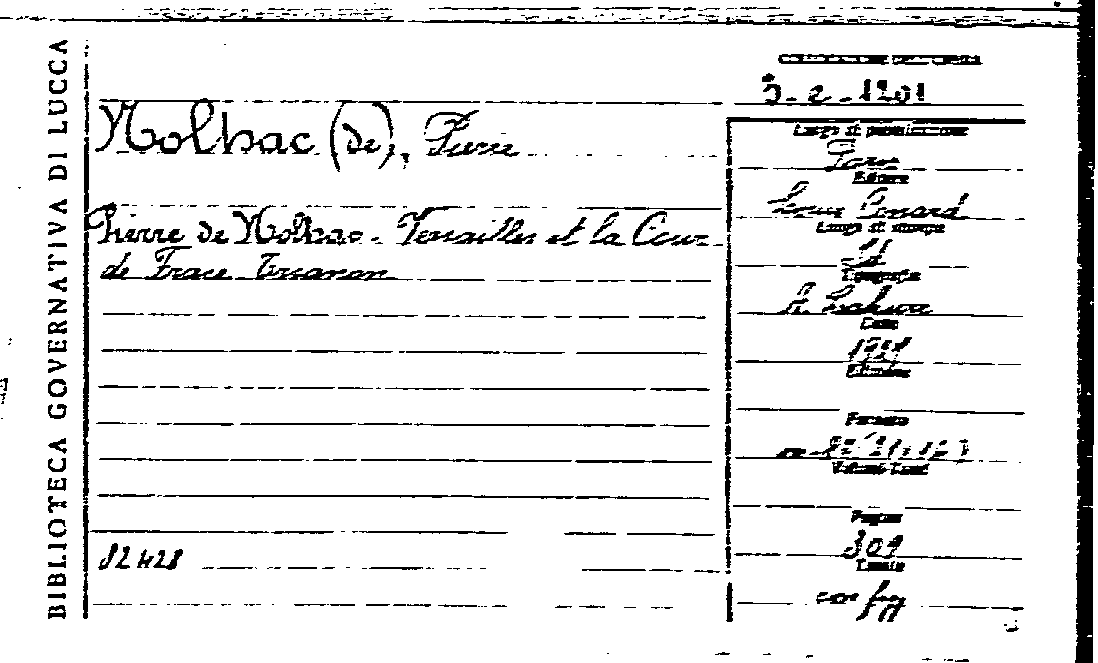 BIBLIOTECA GOVERNATIVA DI LUCCA
Nolhac (de), Pierre
Pierre de Nolhac - Versailles et la Cour
de Frace Trianon
82428
Luogo di pubblicazione
Paris
Editore
Louis Conard
Luogo di stampa
id
Tipografia
A. Lahure
Data
Edizione
Formato
Volumi Tomi
Pagine
309
Tavole
con fig